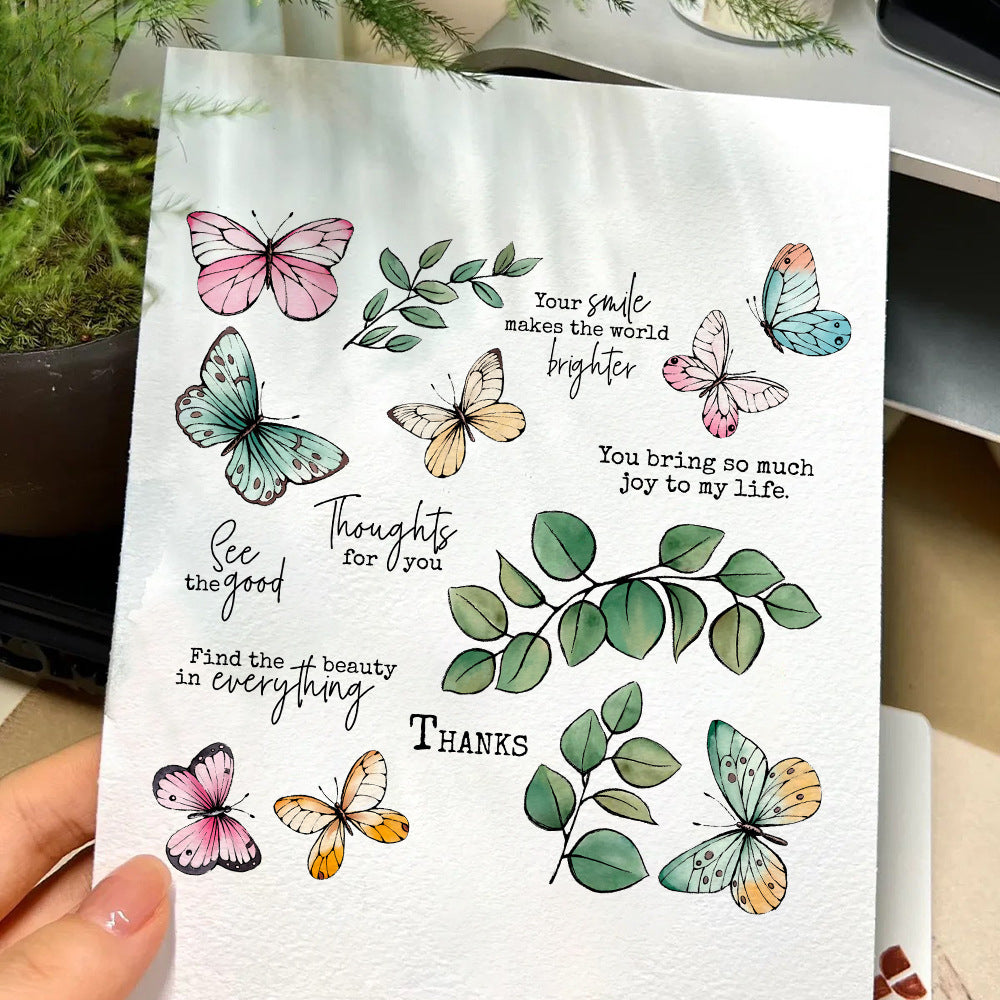 Your smile
makes the world
brighter
You bring so much
joy to my life.
Thoughts
for you
See
the good
Find the beauty
in everything
THANKS